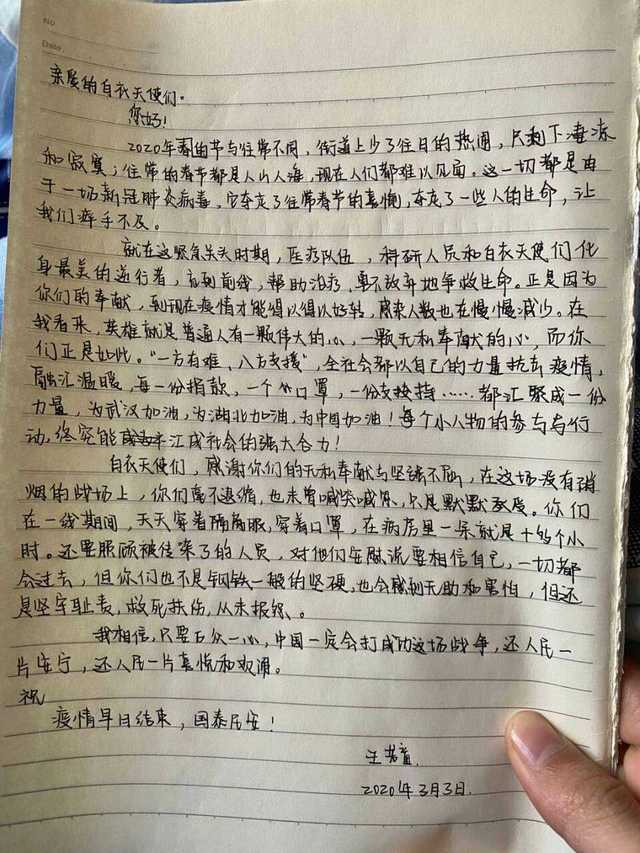 No
Date
亲爱的白衣天使们。
您好!
2020年春的节与往常不同,街道上少了往日的热闹,只剩下凄凉
和寂寞;往常的春节都是人山人海,现在人们都难以见面。这一切都是由
于一场新冠肺炎病毒,它夺走了往常春节的喜悦,夺走了一些人的生命,让
我们舜手不及。
就在这紧急关头时期,医疗队伍,科研人员和白衣天使们化
身最美的逆行者,前线,帮助治疗,不放弃地争救生命。正是因为
你们的奉献,到现在疫情才能得以得以好转,感染人数也在慢慢减少。在
我看来,英雄就是普通人有一颗伟大的心,一颗无私奉献的心,而你
们正是如此。“一方有难、八方支援”,全社会都以自己的力量抗击疫情,
融汇温暖,每一份捐款,一个个口罩,一份支援指……都汇聚成一份
力量,为武汉加油,为湖北加油,为中国加油!每个小人物的参与与行
动,终究能汇成社会的强大合力!
白衣天使们,感谢你们的无私奉献与坚强不屈,在这场没有硝
烟的战场上,你们毫不退缩,也未曾喊哭喊累,只是默默承受。你们
在一线期间,天天穿着隔离服,穿着口罩,在病房里一呆就是十多个小
时。还要照顾被传染了的人员,对他们安慰说要相信自己,一切都
会过去,但你们也不是钢铁一般的坚硬,也会感到无助和害怕,但还
是坚守职责,救死扶伤,从未报怨。
我相信,只要万众一心,中国一定会打成功这场战争,还人民一
片安宁,还人民一片喜悦和欢通。
祝
疫情早日结束,国泰民安!
2020年3月3日.